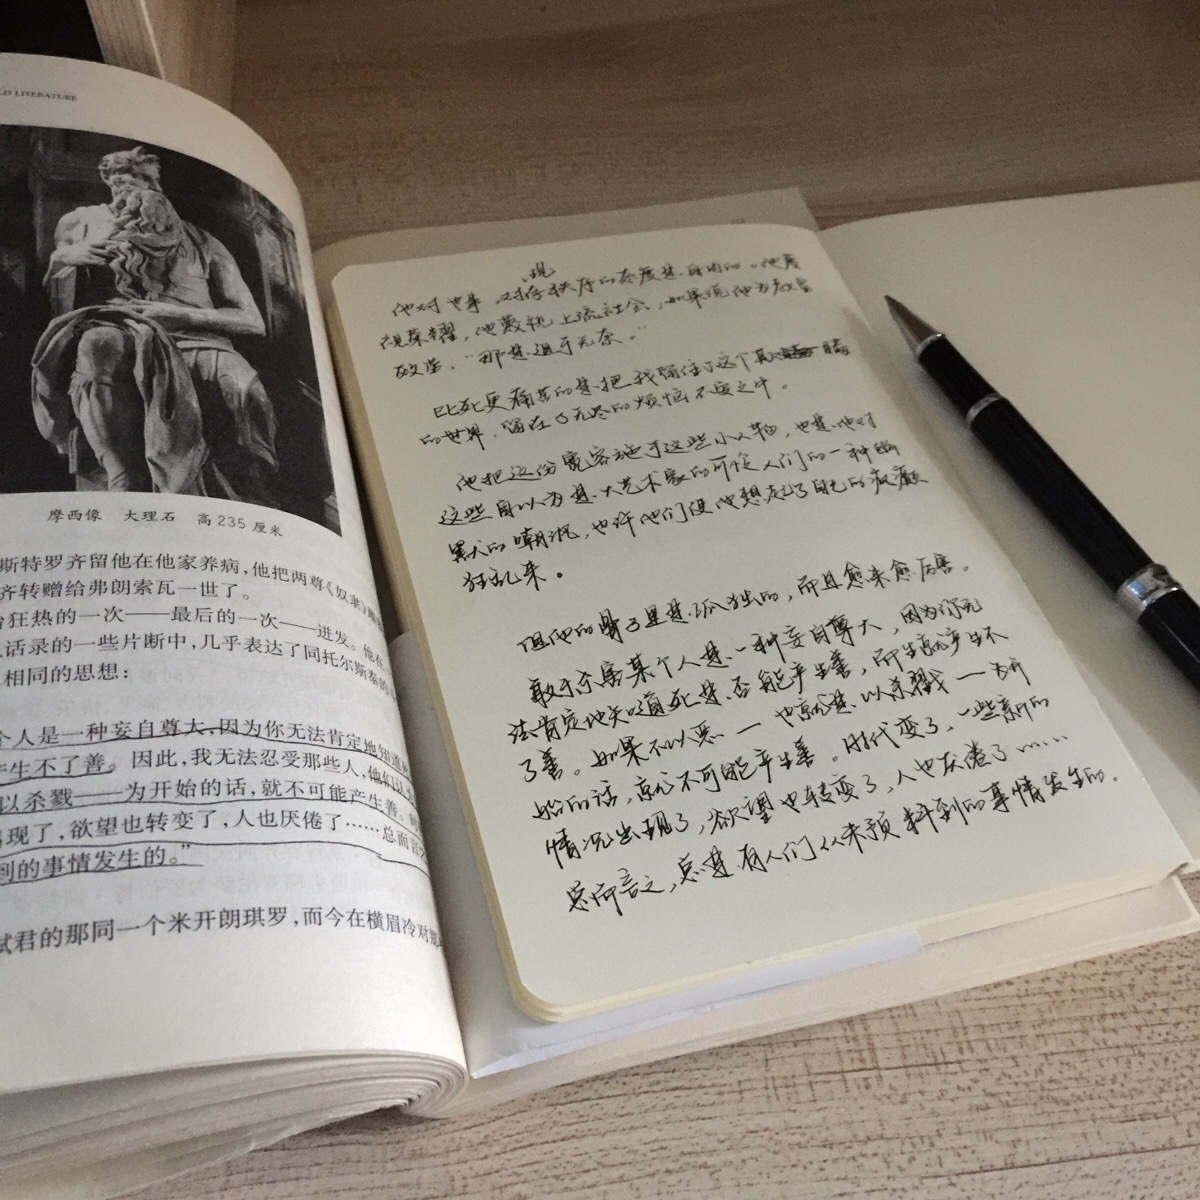 LD LITERATURE
摩西像 大理石 高235厘米
斯特罗齐留他在他家养病,他把两尊《奴隶》雕
齐转赠给弗朗索瓦一世了。
狂热的一次——最后的一次——迸发。他在
话录的一些片断中,几乎表达了同托尔斯泰的
相同的思想:
个人是一种妄自尊大,因为你无法肯定地知道死
产生不了善。因此,我无法忍受那些人,他们以为
以杀戮——为开始的话,就不可能产生善。时
出现了,欲望也转变了,人也厌倦了……总而言之
到的事情发生的。”
弑君的那同一个米开朗琪罗,而今在横眉冷对凯
现
他对世事 对存秩序的态度是自由的。他蔑
视荣耀,他蔑视上流社会,如果说他为教皇
效劳,“那是迫于无奈。”
比死更痛苦的是把我留住了这个
的世界,留在了无尽的烦恼不安之中。
他把这份宽容施于这些小人物,也是他对
这些自以为是大艺术家的可怜人们的一种幽
默的嘲讽,也许他们使他想起了自己的疯癫
狂乱来。
但他的骨子里是孤独的,而且愈来愈厉害。
敢于杀害某个人是一种妄自尊大,因为你无
法肯定地知道死是否能产生善,而生就产生不
了善。如果不以恶——也就是以杀戮——为开
始的话,就不可能产生善。时代变了,一些新的
情况出现了,欲望也转变了,人也厌倦了……
总而言之,总是有人们从未预料到的事情发生的。